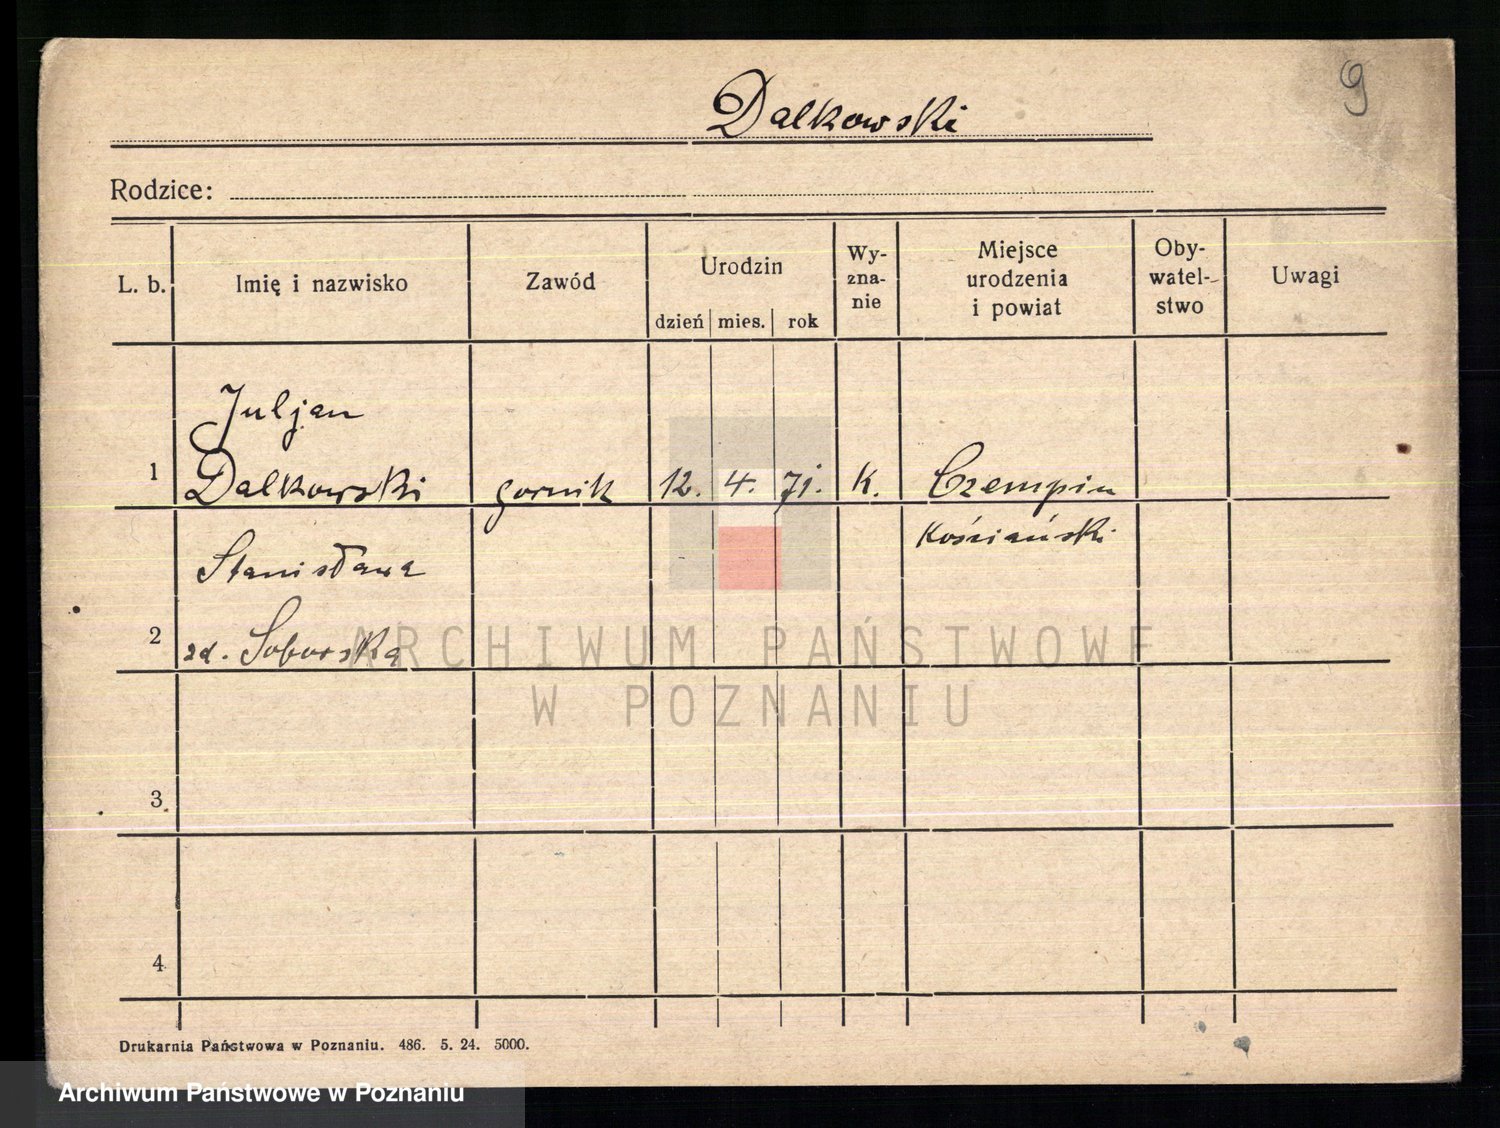 9
Dalkowski
Rodzice:
L. b. Imię i nazwisko Zawód Urodzin dzień mies. rok Wy-zna-nie Miejsce urodzenia i powiat Oby-watel-stwo Uwagi
Juljan
1 Dalkowski gornik 12. 4. 71. K. Czempin
Kościański
Stanisława
2 zd. Soborska
3.
4
ARCHIWUM PAŃSTWOWE
W POZNANIU
Drukarnia Państwowa w Poznaniu. 486. 5. 24. 5000.
Archiwum Państwowe w Poznaniu